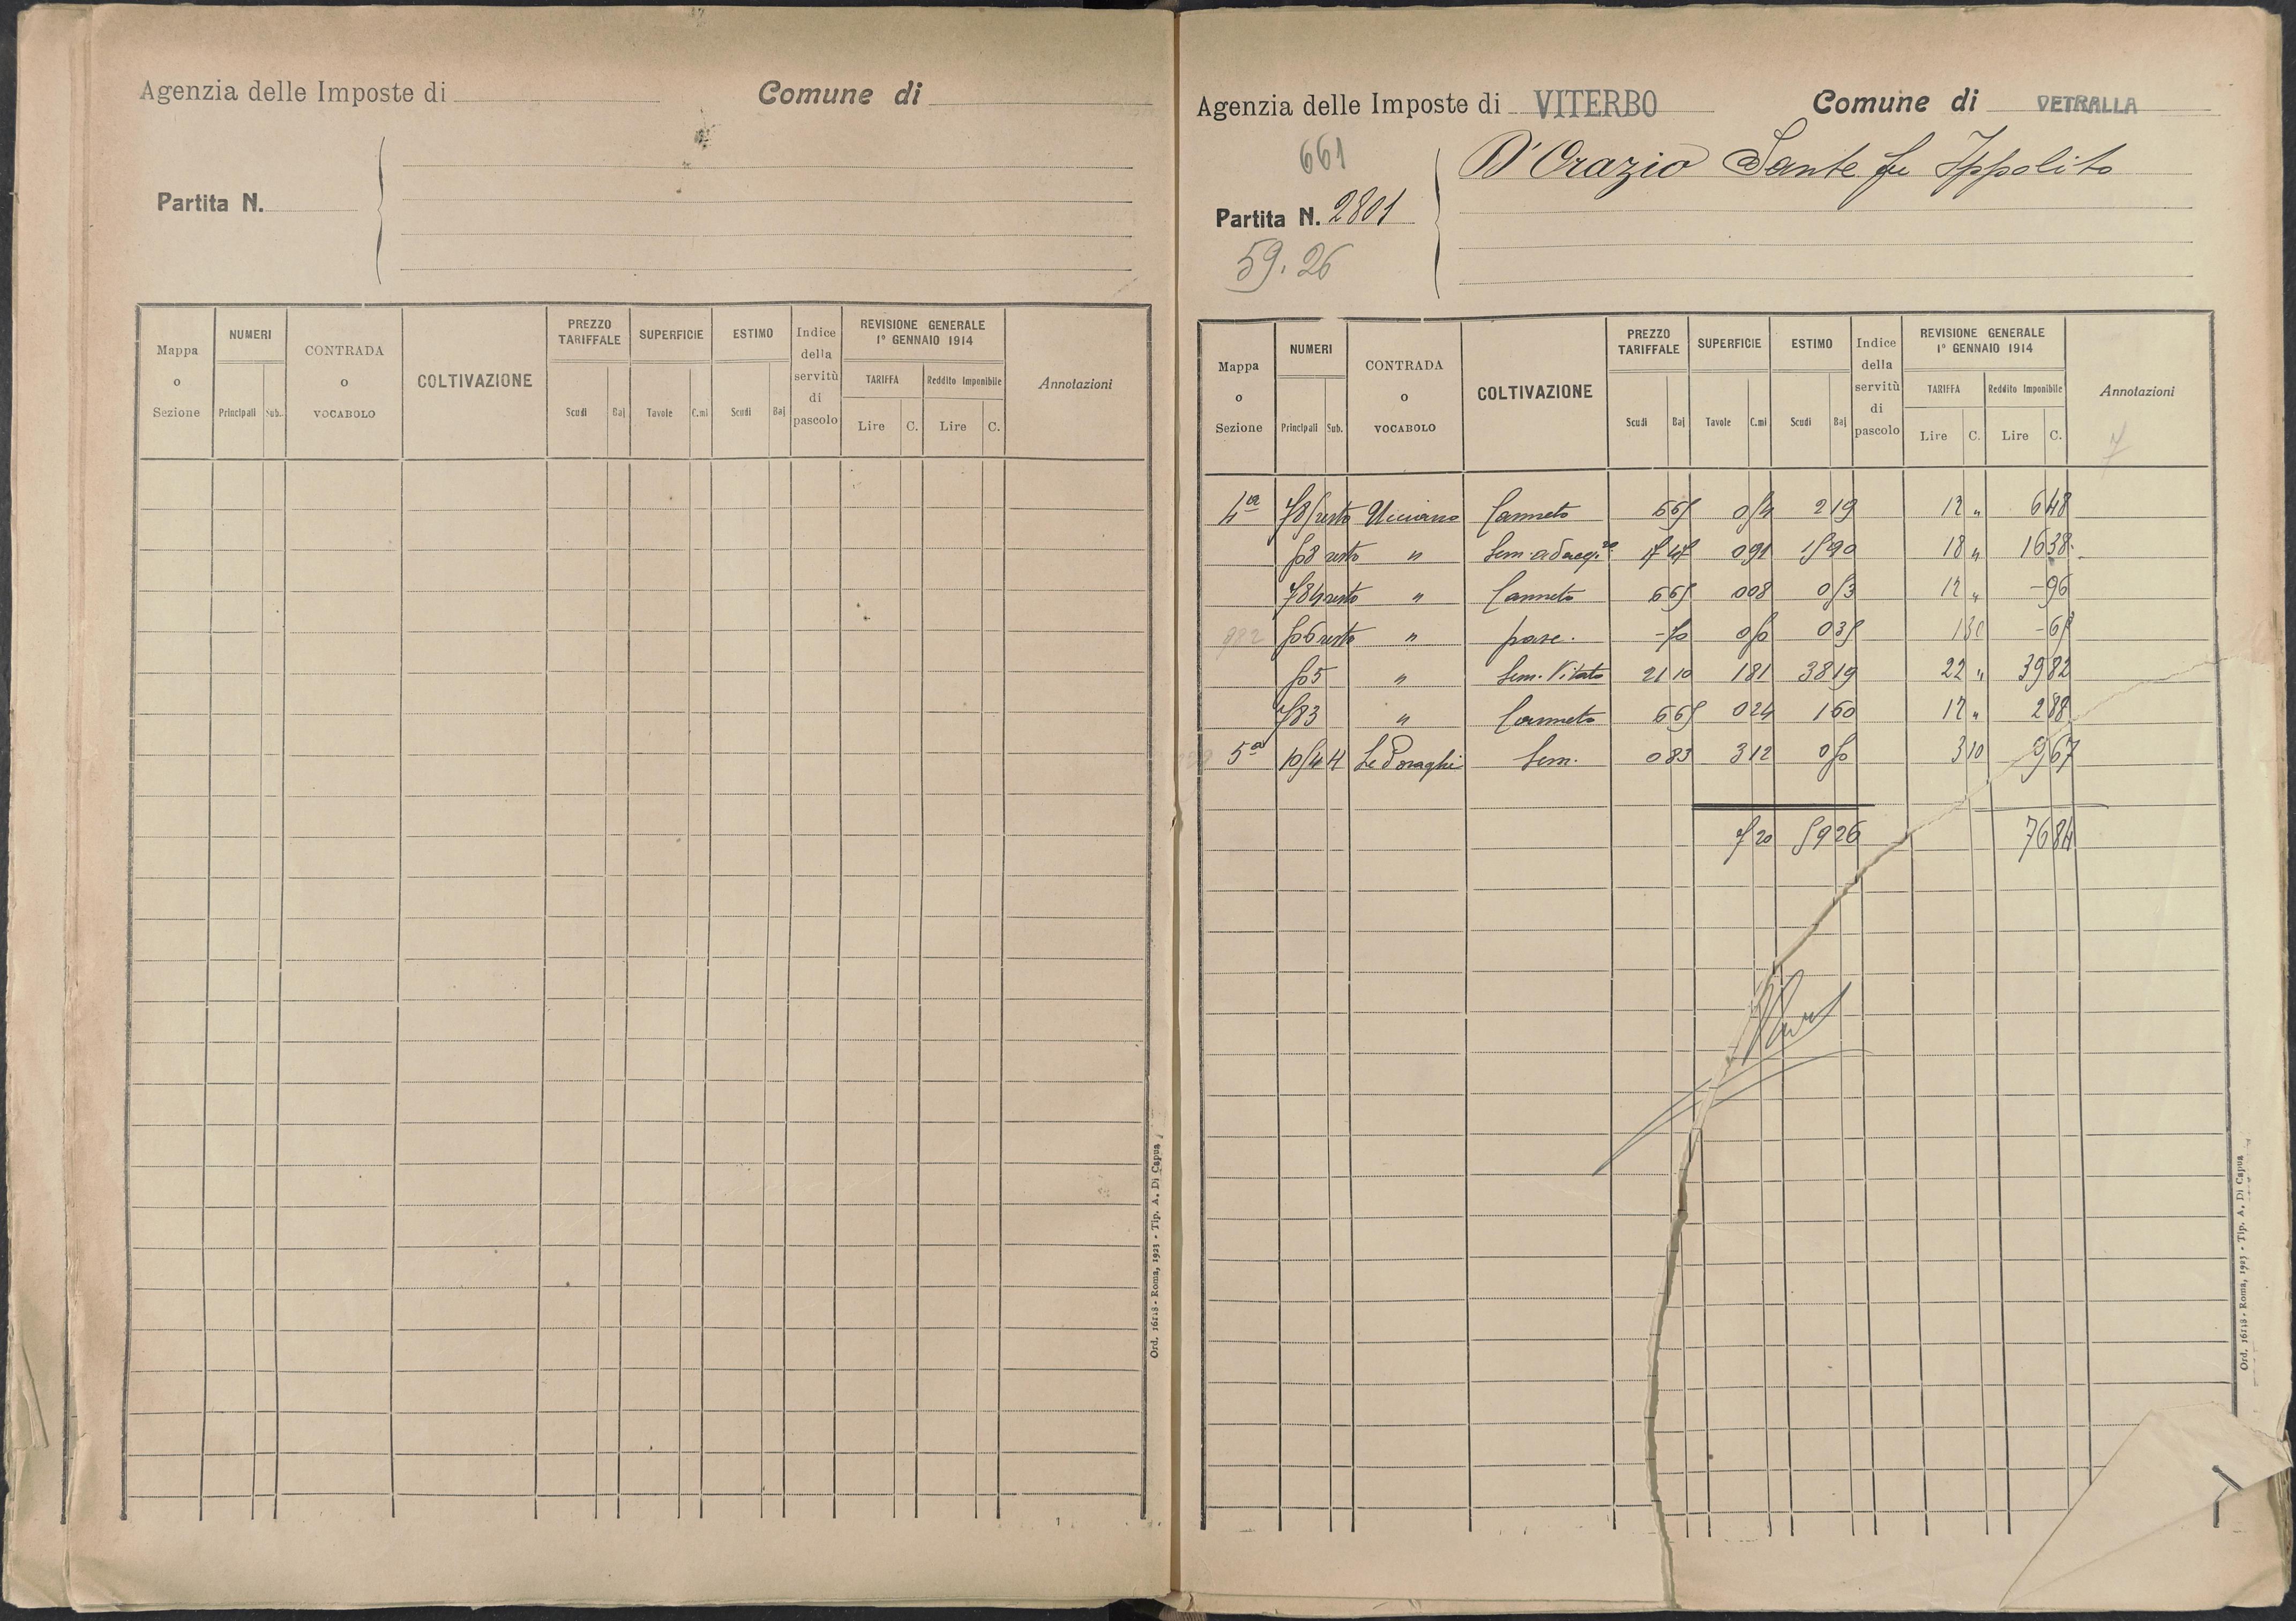 Agenzia delle Imposte di
Comune di
Partita N.
Mappa o Sezione
NUMERI
Principali Sub.
CONTRADA o VOCABOLO
COLTIVAZIONE
PREZZO TARIFFALE
Scudi Baj
SUPERFICIE
Tavole C.mi
ESTIMO
Scudi Baj
Indice della servitù di pascolo
REVISIONE GENERALE 1º GENNAIO 1914
TARIFFA
Lire C.
Reddito Imponibile
Lire C.
Annotazioni
Ord. 16118 - Roma, 1923 - Tip. A. Di Capua
1
Agenzia delle Imposte di VITERBO
Comune di VETRALLA
661
D'Orazio Sante fu Ippolito
Partita N. 2801
59.26
Mappa o Sezione
NUMERI
Principali Sub.
CONTRADA o VOCABOLO
COLTIVAZIONE
PREZZO TARIFFALE
Scudi Baj
SUPERFICIE
Tavole C.mi
ESTIMO
Scudi Baj
Indice della servitù di pascolo
REVISIONE GENERALE 1º GENNAIO 1914
TARIFFA
Lire C.
Reddito Imponibile
Lire C.
Annotazioni
7
4ª resto Canneto 6 65 0 54 2 19 12 " 6 48
508 resto " Sem. adacq. 17 47 0 91 15 90 18 " 16 38
784 resto " Canneto 6 65 0 08 0 53 12 " - 96
506 resto " pasc. - 70 0 50 0 35 1 30 - 65
505 " Sem. Vitato 21 10 1 81 38 19 22 " 39 82
783 " Canneto 6 65 0 24 1 60 12 " 2 88
5ª Sem. 0 83 3 12 0 50 3 10 9 67
7 20 59 26 76 84
Ord. 16118 - Roma, 1923 - Tip. A. Di Capua